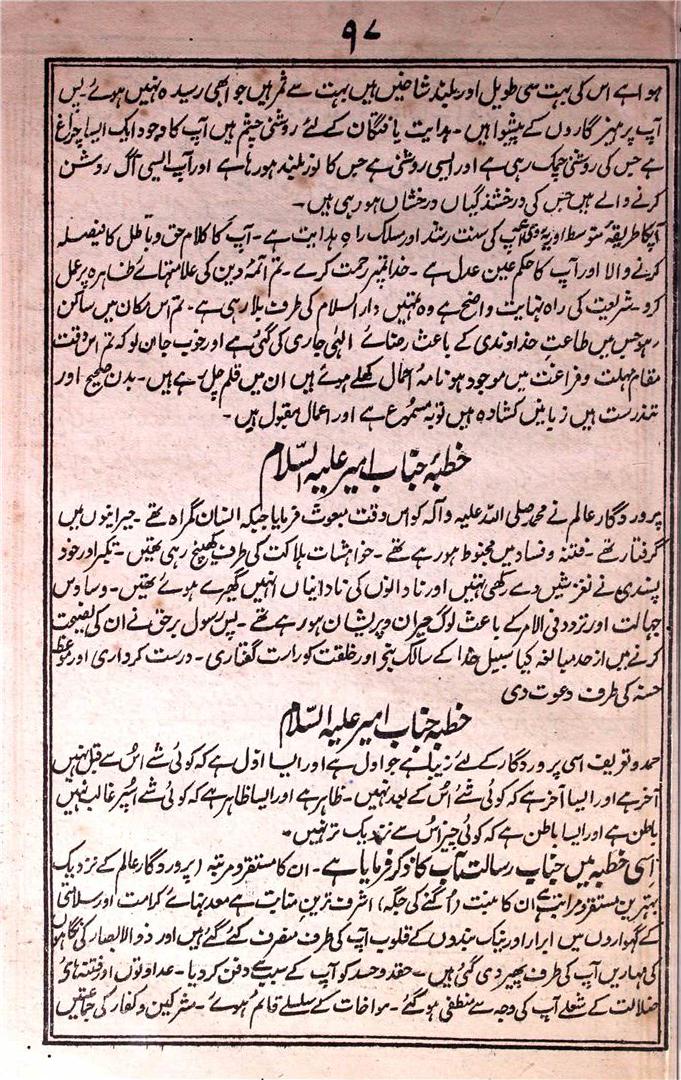 ۹۷
ہوا ہے اس کی بہت سی طویل اور بلند شاخیں ہیں بہت سے ثمر ہیں جو ابھی رسیدہ نہیں ہوئے پس
آپ پرہیز گاروں کے پیشوا ہیں۔ ہدایت یافتگان کے لئے روشنی چشم ہیں آپ کا وجود ایک ایسا چراغ
ہے جس کی روشنی چمک رہی ہے اور ایسی روشنی ہے جس کا نور بلند ہو رہا ہے اور آپ ایسی آگ روشن
کرنے والے ہیں جس کی درخشندگیاں درخشاں ہو رہی ہیں۔
آپکا طریقہ متوسط اور آپ کی سنت رشد اور مسلک راہِ ہدایت ہے۔ آپ کا کلام حق و باطل کا فیصلہ
کرنے والا اور آپ کا حکم عین عدل ہے۔ خدا تمپر رحمت کرے۔ تم ائمہ دین کی علامتہائے ظاہرہ پر عمل
کرو۔ شریعت کی راہ نہایت واضح ہے وہ تمہیں دار السلام کی طرف بلا رہی ہے۔ تم اس مکان میں ساکن
ہو جس میں طاعت خداوندی کے باعث رضائے الٰہی جاری کی گئی ہے اور خوب جان لو کہ تم اس وقت
مقام مہلت و فراغت میں موجود ہو نامہ اعمال کھلے ہوئے ہیں ان میں قلم چل رہے ہیں۔ بدن صحیح اور
تندرست ہیں زبانیں کشادہ ہیں توبہ مسموع ہے اور اعمال مقبول ہیں۔
خطبۂ جناب امیر علیہ السّلام
پروردگار عالم نے محمد صلی اللہ علیہ وآلہ کو اس وقت مبعوث فرمایا جبکہ انسان گمراہ تھے۔ حیرانیوں میں
گرفتار تھے۔ فتنہ و فساد میں مخبوط ہو رہے تھے۔ خواہشات ہلاکت کی طرف کھینچ رہی تھیں۔ تکبر اور خود
پسندی نے لغزشیں دے رکھی تھیں اور نادانوں کی نادانیاں انہیں گھیرے ہوئے تھیں۔ وساوس
جہالت اور تردد فی الامر کے باعث لوگ حیران و پریشان ہو رہے تھے۔ پس رسول برحق نے ان کی نصیحت
کرنے میں از حد مبالغہ کیا سبیل خدا کے سالک بنے اور خلقت کو راست گفتاری۔ درست کرداری اور موعظہ
حسنہ کی طرف دعوت دی
خطبہ جناب امیر علیہ السّلام
حمد و تعریف اسی پروردگار کے لئے زیبا ہے جو اول ہے اور ایسا اوّل ہے کہ کوئی شے اس سے قبل نہیں
آخر ہے اور ایسا آخر ہے کہ کوئی شے اس کے بعد نہیں۔ ظاہر ہے اور ایسا ظاہر ہے کہ کوئی شے اُسپر غالب نہیں
باطن ہے اور ایسا باطن ہے کہ کوئی چیز اس سے نزدیک تر نہیں۔
اِسی خطبہ میں جناب رسالت مآب کا ذکر فرمایا ہے۔ ان کا مستقر و مرتبہ (پروردگار عالم کے نزدیک
بہترین مستقر و مراتب ہے ان کا منبت (اُگنے کی جگہ) اشرف ترین منابت ہے معدنہائے کرامت اور سلامتی
کے گہواروں میں ابرار اور نیک بندوں کے قلوب آپ کی طرف منصرف کئے گئے ہیں اور ذو الابصار کی نگاہوں
کی مہاریں آپ کی طرف پھیر دی گئی ہیں۔ حقد و حسد کو آپ کے سبب سے دفن کر دیا۔ عداوتوں اور فتنہ ہائے
ضلالت کے شعلے آپ کی وجہ سے منطفی ہو گئے۔ مواخات کے سلسلے قائم ہوئے۔ مشرکین و کفار کی جماعتیں